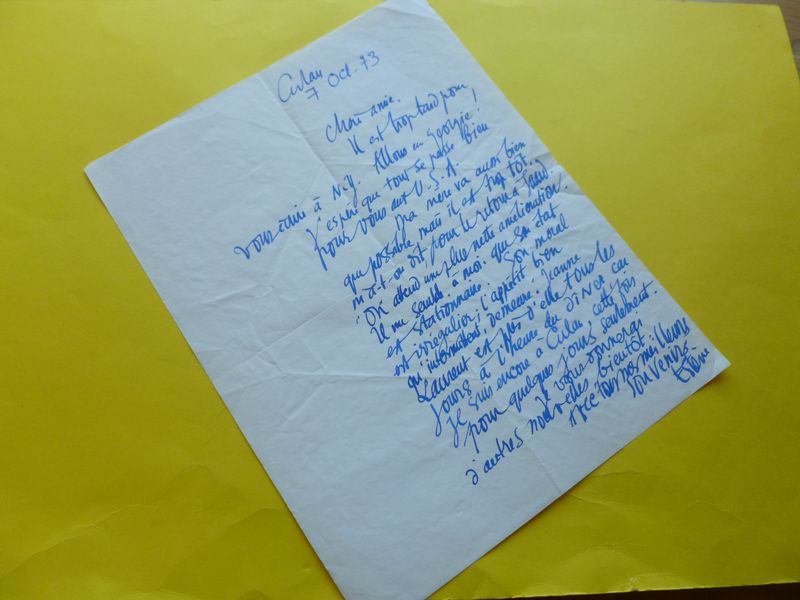 7 Oct. 73
Chère amie.
Il est trop tard pour
vous écrire à N.Y. Allons en Georgie!
J'espère que tout se passe bien
pour vous aux U.S.A
Ma mère va aussi bien
que possible mais il est trop tôt
m'a-t-on dit pour le retour à
"On attend un plus nette amélioration.
Il me semble à moi que son état
est stationnaire. Son moral
est irrégulier; l'appétit bien
qu'intermittent, demeure. Jeanne
Laurent est près d'elle tous les
jours à l'heure du dîner car
je suis encore à cette fois
pour quelques jours seulement.
Je vous donnerai
d'autres nouvelles bientôt
avec tous nos meilleurs
souvenirs